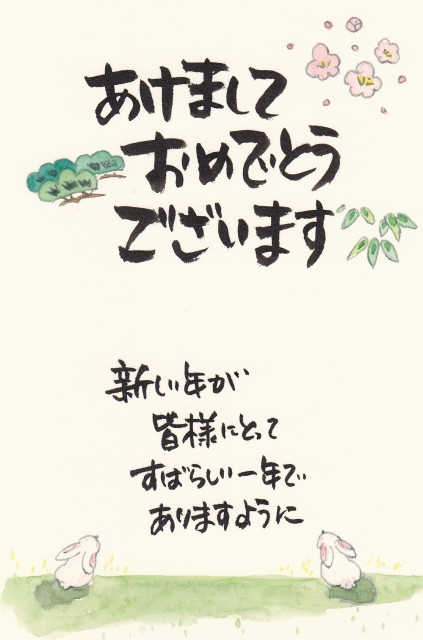 あけまして
おめでとう
ございます
新しい年が
皆様にとって
すばらしい一年で
ありますように